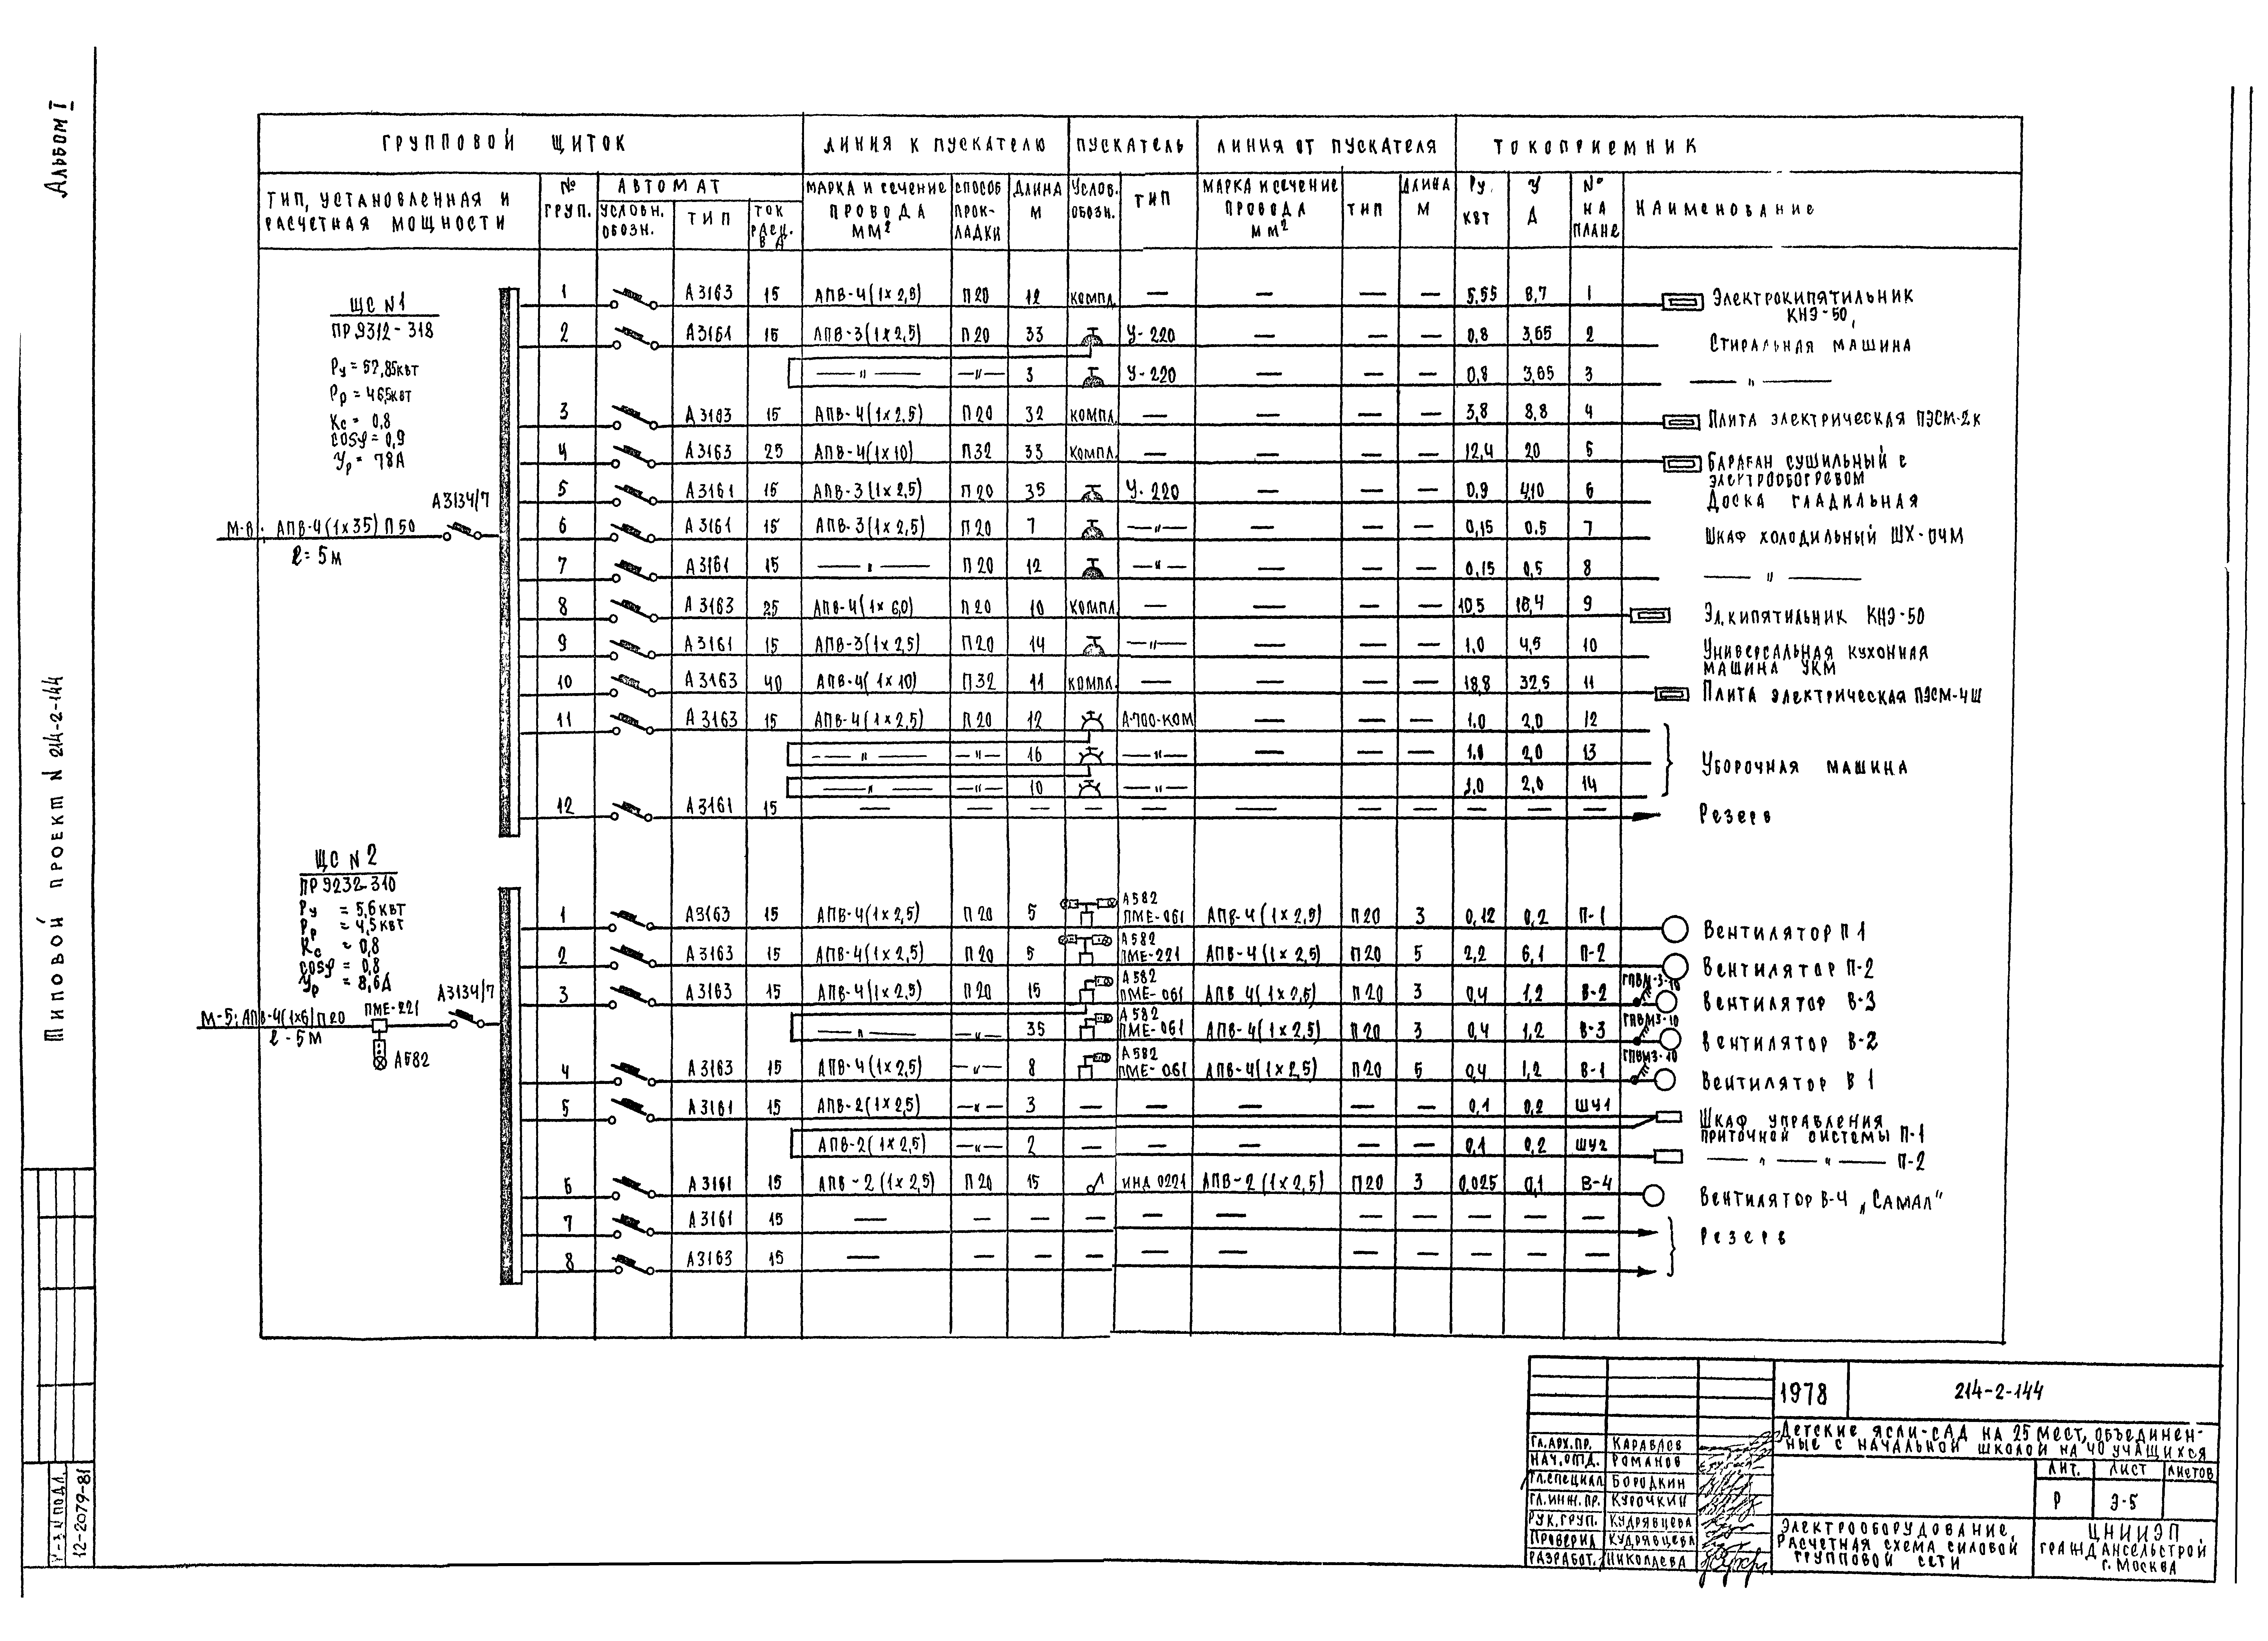 Альбом I
Типовой проект N 214-2-144
12-2079-81
ГРУППОВОЙ ЩИТОК
ЛИНИЯ К ПУСКАТЕЛЮ
ПУСКАТЕЛЬ
ЛИНИЯ ОТ ПУСКАТЕЛЯ
ТОКОПРИЕМНИК
ТИП, УСТАНОВЛЕННАЯ И
РАСЧЕТНАЯ МОЩНОСТИ
№
ГРУП.
АВТОМАТ
УСЛОВН.
ОБОЗН.
ТИП
ТОК
РАСЦ.
В А
МАРКА И СЕЧЕНИЕ
ПРОВОДА
ММ²
СПОСОБ
ПРОК-
ЛАДКИ
ДЛИНА
М
УСЛОВ.
ОБОЗН.
ТИП
МАРКА И СЕЧЕНИЕ
ПРОВОДА
ММ²
ТИП
ДЛИНА
М
Ру.
КВТ
У
А
№
НА
ПЛАНЕ
НАИМЕНОВАНИЕ
ЩС N1
ПР 9312-318
Ру = 57,85 КВТ
Рр = 46,5 КВТ
Кс = 0,8
cosφ = 0,9
Ур = 78А
А3134/7
М-8; АПВ-4(1х35) П50
ℓ = 5м
1 А3163 15 АПВ-4(1х2,5) П20 12 КОМПЛ. — — — — 5,55 8,7 1 Электрокипятильник
КНЭ-50,
2 А3161 15 АПВ-3(1х2,5) П20 33 У-220 — — — 0,8 3,65 2 Стиральная машина
— " — — " — 3 У-220 — — — 0,8 3,65 3 — " —
3 А3163 15 АПВ-4(1х2,5) П20 32 КОМПЛ. — — — — 3,8 8,8 4 Плита электрическая ПЭСМ-2К
4 А3163 25 АПВ-4(1х10) П32 33 КОМПЛ. — — — — 12,4 20 5 Барабан сушильный с
электрообогревом
5 А3161 15 АПВ-3(1х2,5) П20 35 У-220 — — — 0,9 4,10 6 Доска гладильная
6 А3161 15 АПВ-3(1х2,5) П20 7 — " — — — — 0,15 0,5 7 Шкаф холодильный ШХ-04М
7 А3161 15 — " — П20 12 — " — — — — 0,15 0,5 8 — " —
8 А3163 25 АПВ-4(1х6,0) П20 10 КОМПЛ. — — — — 10,5 16,4 9 Эл.кипятильник КНЭ-50
9 А3161 15 АПВ-3(1х2,5) П20 14 — " — — — — 1,0 4,5 10 Универсальная кухонная
машина УКМ
10 А3163 40 АПВ-4(1х10) П32 11 КОМПЛ. — — — — 18,8 32,5 11 Плита электрическая ПЭСМ-4Ш
11 А3163 15 АПВ-4(1х2,5) П20 12 А-700-КОМ — — — 1,0 2,0 12
— " — — " — 16 — " — — — — 1,0 2,0 13 Уборочная машина
— " — — " — 10 — " — 1,0 2,0 14
12 А3161 15 — — — — — — — — — — — Резерв
ЩС N2
ПР 9232-310
Ру = 5,6 КВТ
Рр = 4,5 КВТ
Кс = 0,8
cosφ = 0,8
Ур = 8,6А
А3134/7
М-5; АПВ-4(1х6) П20
ПМЕ-221
ℓ - 5м
А582
1 А3163 15 АПВ-4(1х2,5) П20 5 А582 ПМЕ-061 АПВ-4(1х2,5) П20 3 0,12 0,2 П-1 Вентилятор П1
2 А3163 15 АПВ-4(1х2,5) П20 5 А582 ПМЕ-221 АПВ-4(1х2,5) П20 5 2,2 6,1 П-2 Вентилятор П-2
3 А3163 15 АПВ-4(1х2,5) П20 15 А582 ПМЕ-061 АПВ-4(1х2,5) П20 3 0,4 1,2 В-2 ГПВМ-3-10 Вентилятор В-3
— " — — " — 35 А582 ПМЕ-061 АПВ-4(1х2,5) П20 3 0,4 1,2 В-3 ГПВМ3-10 Вентилятор В-2
4 А3163 15 АПВ-4(1х2,5) — " — 8 А582 ПМЕ-061 АПВ-4(1х2,5) П20 5 0,4 1,2 В-1 ГПВМ3-10 Вентилятор В1
5 А3161 15 АПВ-2(1х2,5) — " — 3 — — — — — 0,1 0,2 ШУ1 Шкаф управления
приточной системы П-1
АПВ-2(1х2,5) — " — 2 — — — — — 0,1 0,2 ШУ2 — " — " — П-2
6 А3161 15 АПВ-2(1х2,5) П20 15 ИНД 0221 АПВ-2(1х2,5) П20 3 0,025 0,1 В-4 Вентилятор В-4 „Самал"
7 А3161 15 — — — — — — — — — — —
Резерв
8 А3163 15 — — — — — — — — — — —
1978
214-2-144
Детские ясли-сад на 25 мест, объединен-
ные с начальной школой на 40 учащихся
ГЛ.АРХ.ПР. КАРАВАЕВ
НАЧ.ОТД. РОМАНОВ
ГЛ.СПЕЦИАЛ БОРОДКИН
ГЛ.ИНЖ.ПР. КУРОЧКИН
РУК.ГРУП. КУДРЯВЦЕВА
ПРОВЕРИЛ КУДРЯВЦЕВА
РАЗРАБОТ. НИКОЛАЕВА
ЛИТ. ЛИСТ ЛИСТОВ
Р Э-5
Электрооборудование.
Расчетная схема силовой
групповой сети
ЦНИИЭП
ГРАЖДАНСЕЛЬСТРОЙ
г. МОСКВА